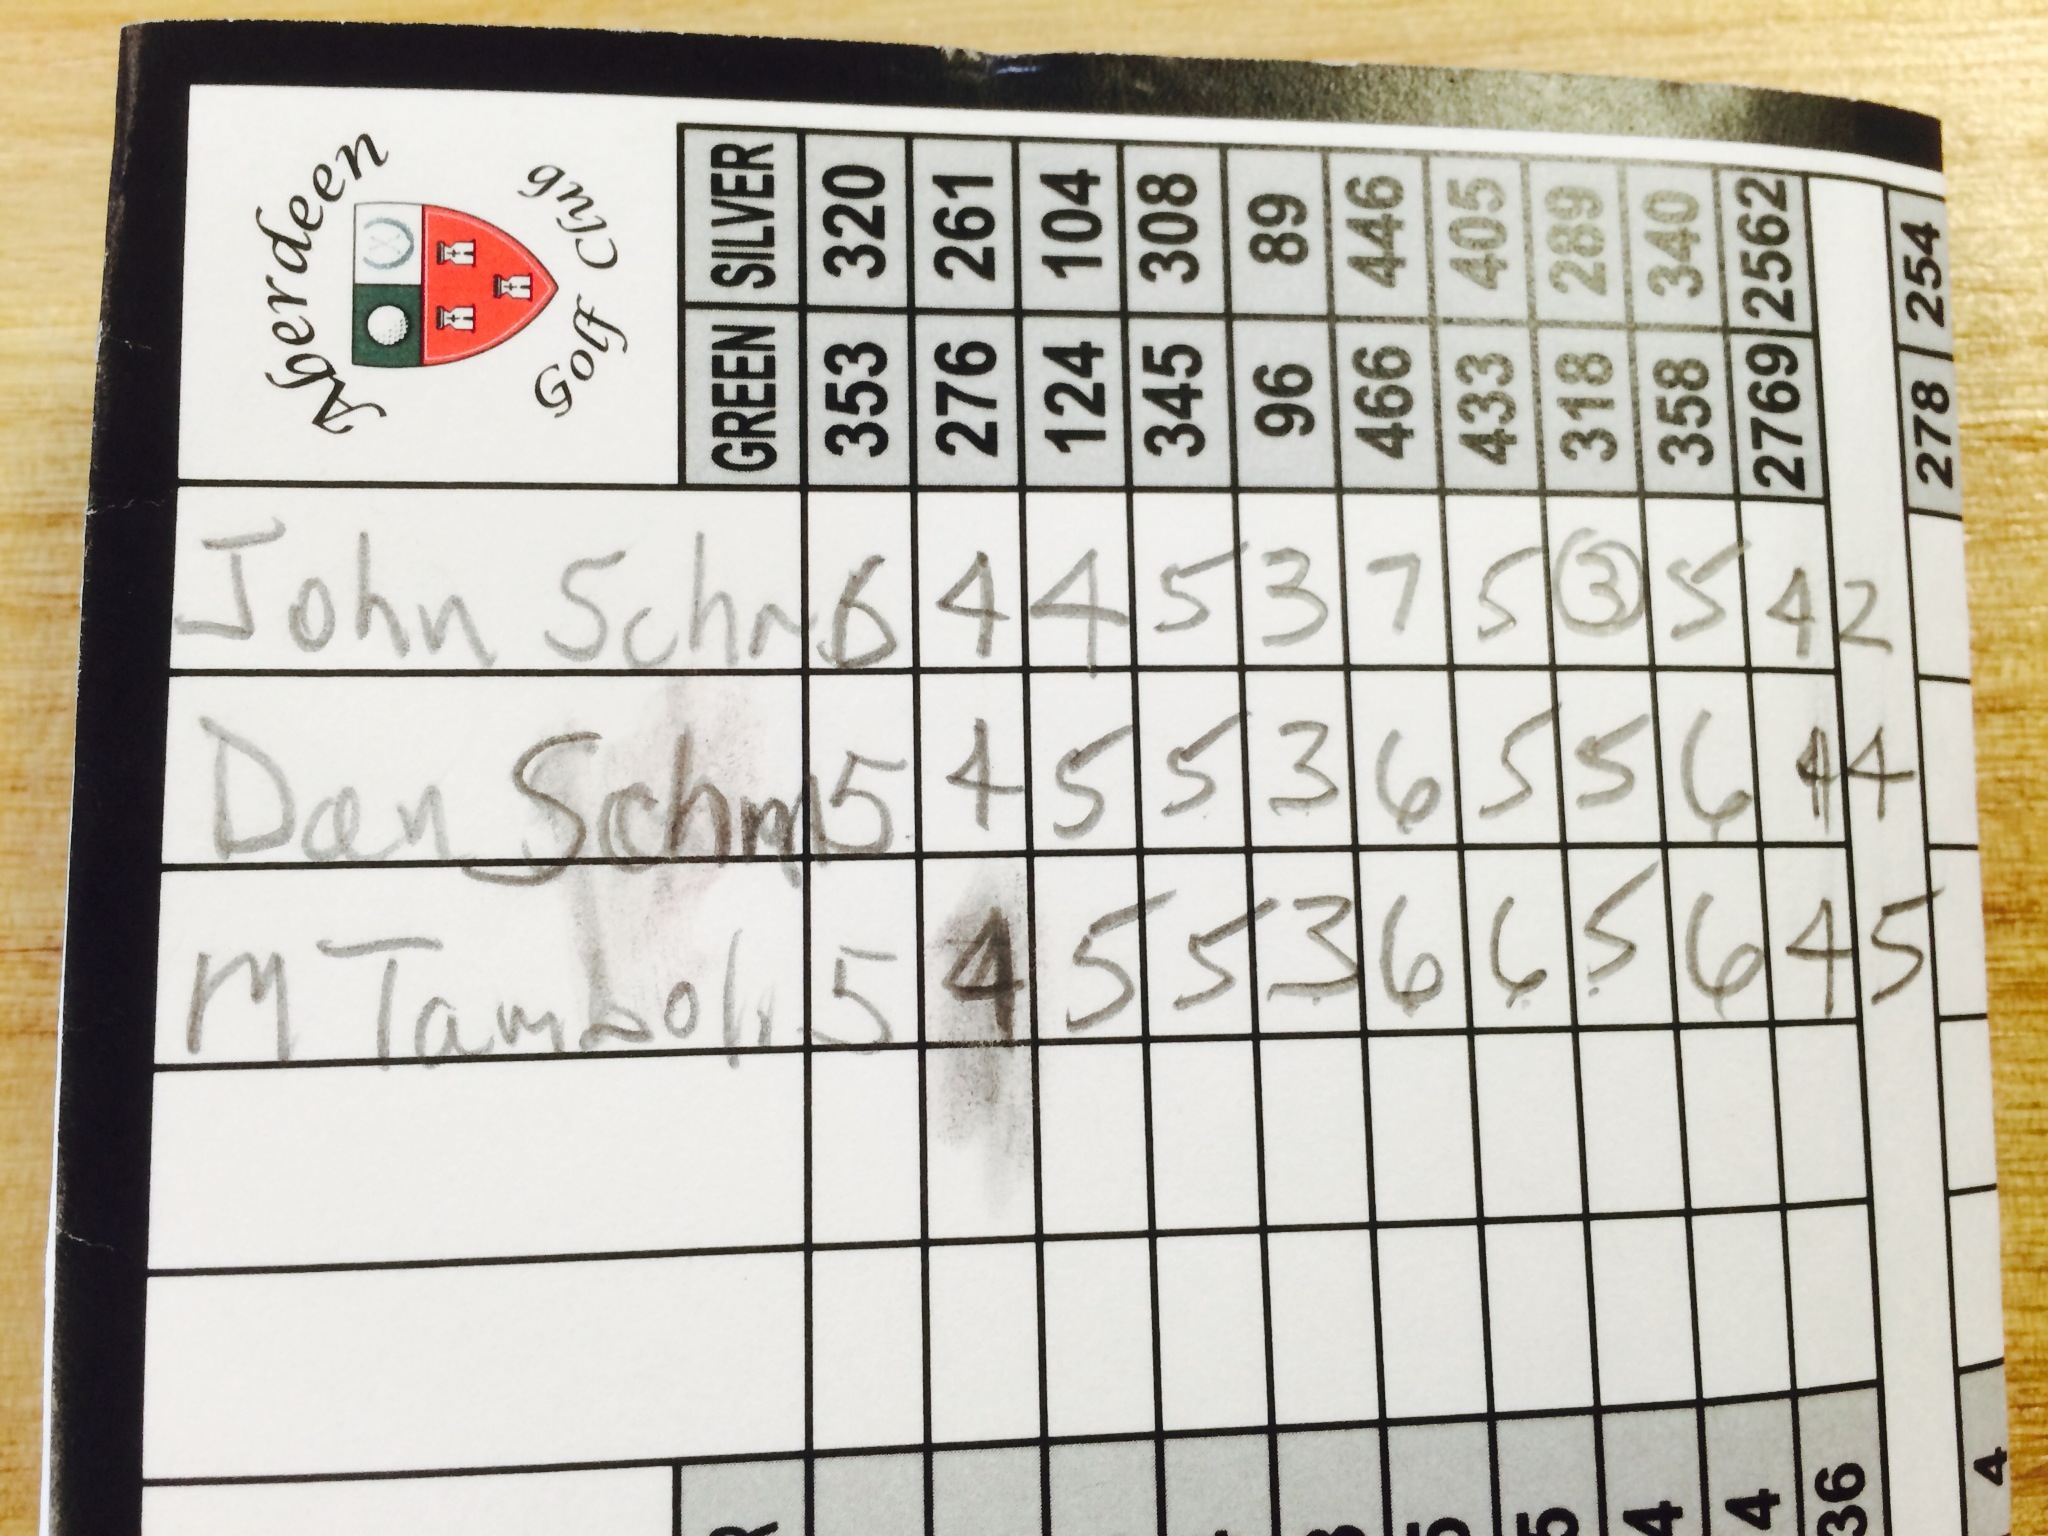 Aberdeen
Golf Club
SILVER 320 261 104 308 89 446 405 289 340 2562 254
GREEN 353 276 124 345 96 466 433 318 358 2769 278
John Schm 6 4 4 5 3 7 5 3 5 42
Dan Schm 5 4 5 5 3 6 5 5 6 44
M Tamboli 5 4 5 5 3 6 6 5 6 45
R 3 5 5 4 4 36 4